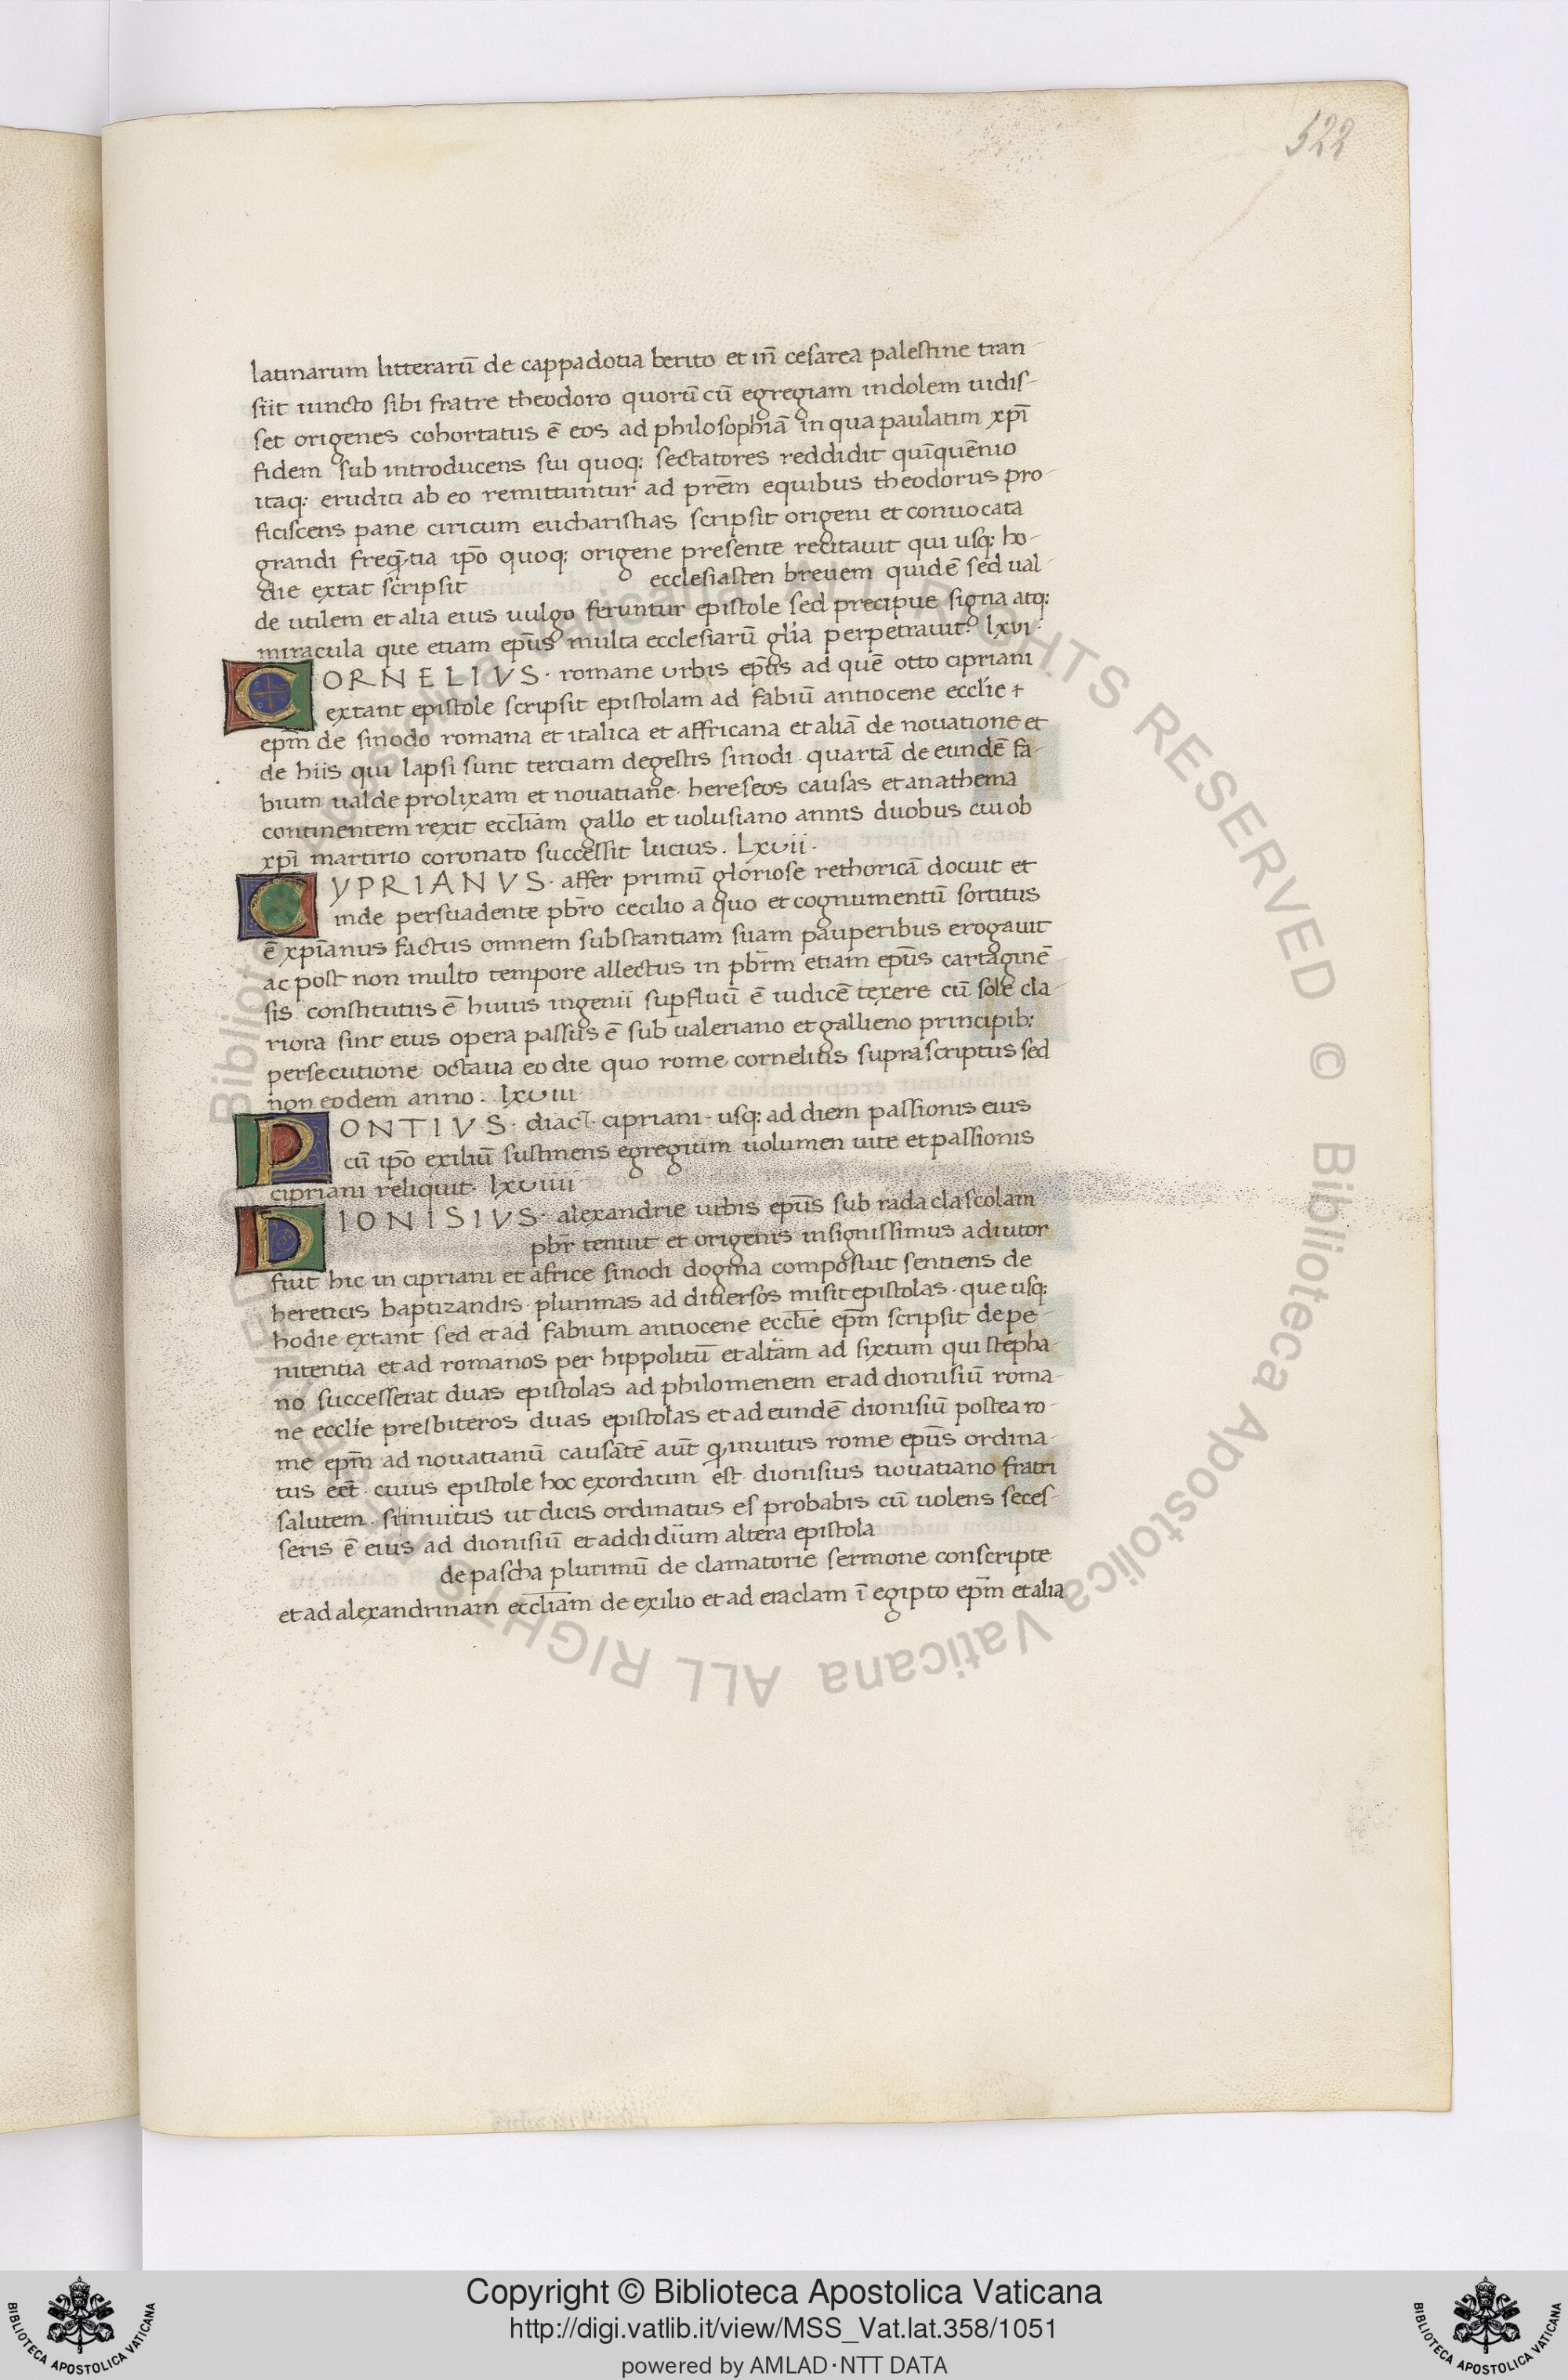 522
latinarum litterarū de cappadotia berito et iñ cesarea palestine tran-
siit iuncto sibi fratre theodoro quorū cū egregiam indolem uidis-
set origenes cohortatus ē eos ad philosophiā in qua paulatim xpī
fidem sub introducens sui quoq: sectatores reddidit quīquēnio
itaq: eruditi ab eo remittuntur ad prēm equibus theodorus pro-
ficiscens pane ciricum eucharistias scripsit origeni et conuocata
grandi freq̄tia ip̄o quoq: origene presente recitauit qui usq: ho-
die extat scripsit ecclesiasten breuem quidē sed ual-
de utilem et alia eius uulgo feruntur epistole sed precipue signa atq:
miracula que etiam ep̄us multa ecclesiarū gl̄ia perpetrauit. lxvi.
CORNELIVS. romane urbis ep̄us ad quē otto cipriani
extant epistole scripsit epistolam ad fabiū antiocene eccl̄ie
ep̄m de sinodo romana et italica et affricana et aliā de nouatione et
de hiis qui lapsi sunt terciam degestis sinodi. quartā de eundē fa-
bium ualde prolixam et nouatiane. hereseos causas et anathema
continentem rexit eccl̄iam gallo et uolusiano annis duobus cui ob
xpī martirio coronato successit lucius. Lxvii.
CYPRIANVS. affer primū gloriose rethoricā docuit et
inde persuadente pb̄ro cecilio a quo et cognumentū sortitus
ē xp̄ianus factus omnem substantiam suam pauperibus erogauit
ac post non multo tempore allectus in pb̄rm etiam ep̄us cartaginē
sis constitutus ē huius ingenii sup̱fluū ē iudicē texere cū sole cla-
riora sint eius opera passus ē sub ualeriano et gallieno principib:
persecutione octaua eo die quo rome cornelius suprascriptus sed
non eodem anno. lxviii.
PONTIVS. diac̄. cipriani. usq: ad diem passionis eius
cū ip̄o exiliū sustinens egregium uolumen uite et passionis
cipriani reliquit. lxviiii
DIONISIVS. alexandrie urbis ep̄us sub rada cla scolam
pb̄r tenuit et origenis insignissimus adiutor
fuit hic in cipriani et africe sinodi dogma composuit sentiens de
hereticis baptizandis. plurimas ad diuersos misit epistolas. que usq:
hodie extant sed et ad fabium antiocene eccl̄ie ep̄m scripsit de pe-
nitentia et ad romanos per hippolitū et altām ad sixtum qui stepha-
no successerat duas epistolas ad philomenem et ad dionisiū roma-
ne eccl̄ie presbiteros duas epistolas et ad eundē dionisiū postea ro-
me ep̄m ad nouatianū causātē aūt q inuitus rome ep̄us ordina-
tus eēt. cuius epistole hoc exordium est. dionisius nouatiano fratri
salutem. si inuitus ut dicis ordinatus es probabis cū uolens seces-
seris ē eius ad dionisiū et ad didium altera epistola
de pascha plurimū de clamatorie sermone conscripte
et ad alexandrinam eccl̄iam de exilio et ad eraclam ī egipto ep̄m et alia
© Biblioteca Apostolica Vaticana ALL RIGHTS RESERVED
Copyright © Biblioteca Apostolica Vaticana
http://digi.vatlib.it/view/MSS_Vat.lat.358/1051
powered by AMLAD·NTT DATA
BIBLIOTECA APOSTOLICA VATICANA
BIBLIOTECA APOSTOLICA VATICANA